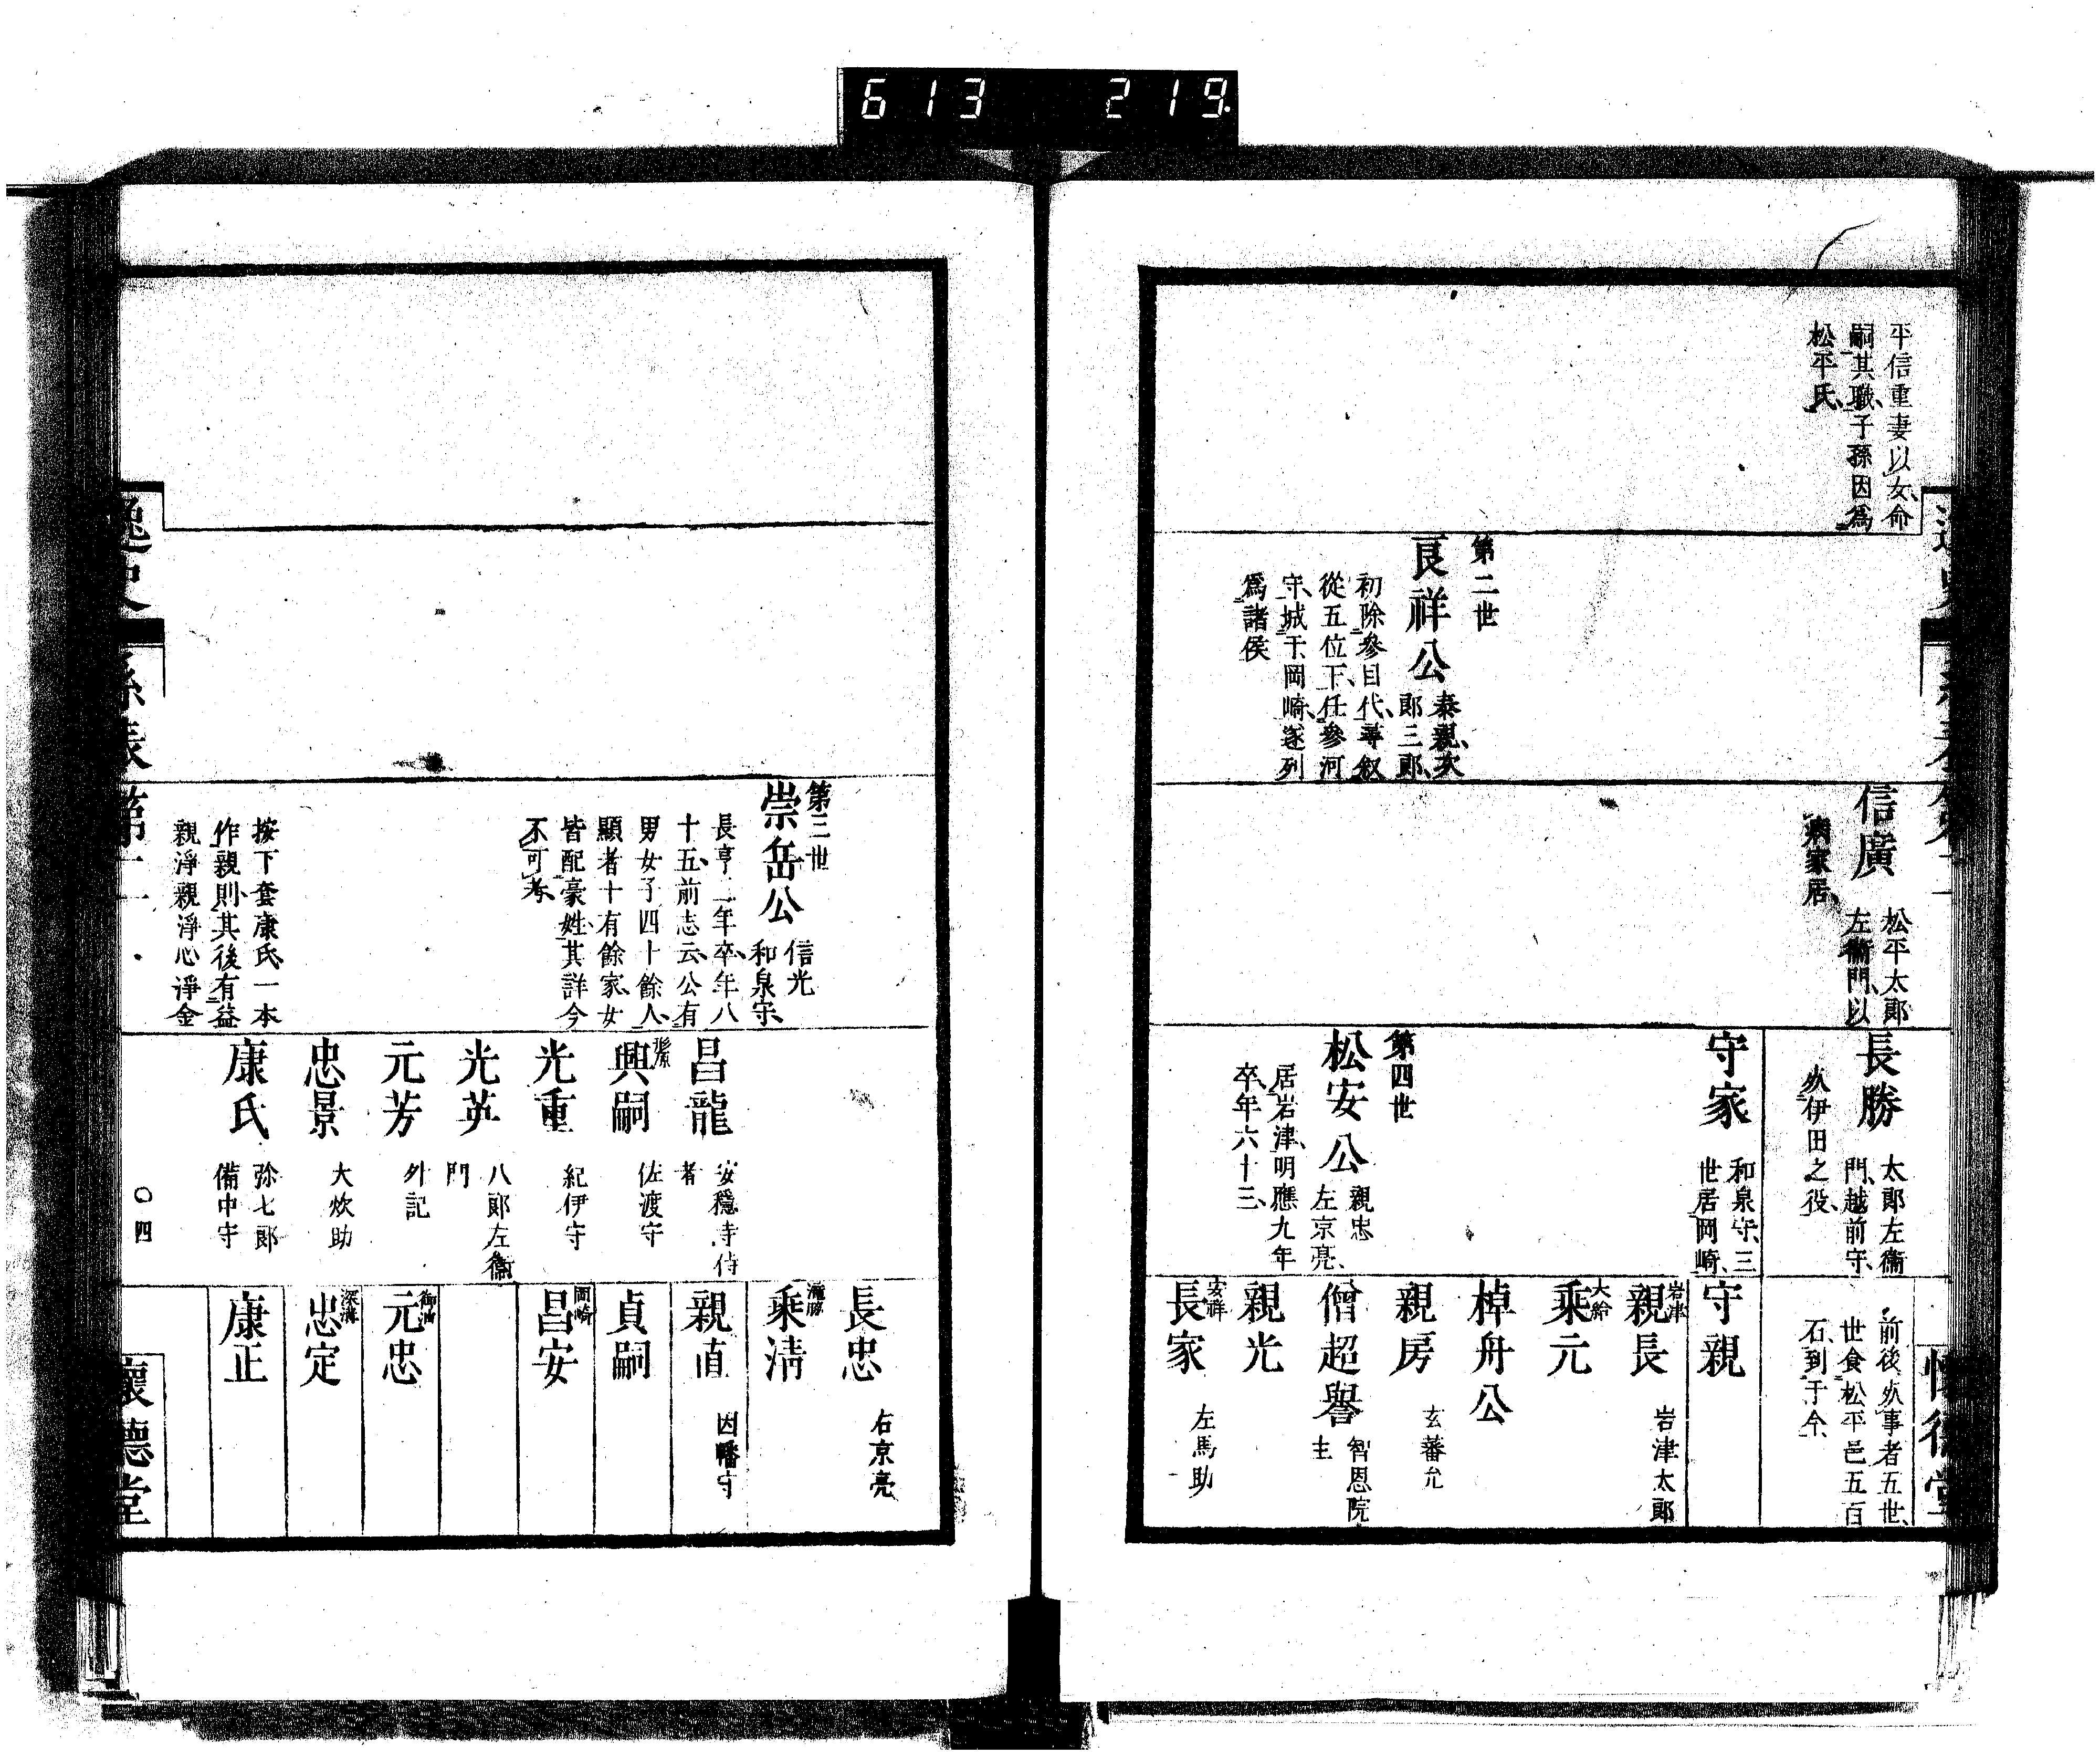 613 219.
平信重妻以女、命
嗣其職、子孫因爲
松平氏、
第二世
良祥公
泰親、次
郎三郎、
初除參目代、尋叙
從五位下、任參河
守、城于岡崎、遂列
爲諸侯
信廣
松平太郎
左衞門、以
病家居、
長勝
太郎左衞
門、越前守、
从伊田之役、
前後从事者五世、
世食松平邑五百
石、到于今、
守家
和泉守、三
世居岡崎、
守親
第四世
松安公
親忠
左京亮、
居岩津、明應九年
卒、年六十三、
岩津
親長
岩津太郎
大給
乘元
棹舟公
親房
玄蕃允
僧超譽
智恩院
主
親光
安祥
長家
左馬助
懷德堂
第三世
崇岳公
信光
和泉守、
長亨二年卒、年八
十五、前志云、公有
男女子四十餘人、
顯者十有餘家、女
皆配豪姓、其詳今
不可考、
按下套康氏、一本
作親則、其後有益
親淨親淨心淨金
長忠
右京亮
瀧脇
乘淸
昌龍
安穩寺侍
者
親直
因幡守
興嗣
佐渡守
貞嗣
光重
紀伊守
岡崎
昌安
光英
八郎左衞
門
元芳
外記
御油
元忠
忠景
大炊助
深溝
忠定
康氏
弥七郎
備中守
康正
逸史
系表第二
〇四
懷德堂